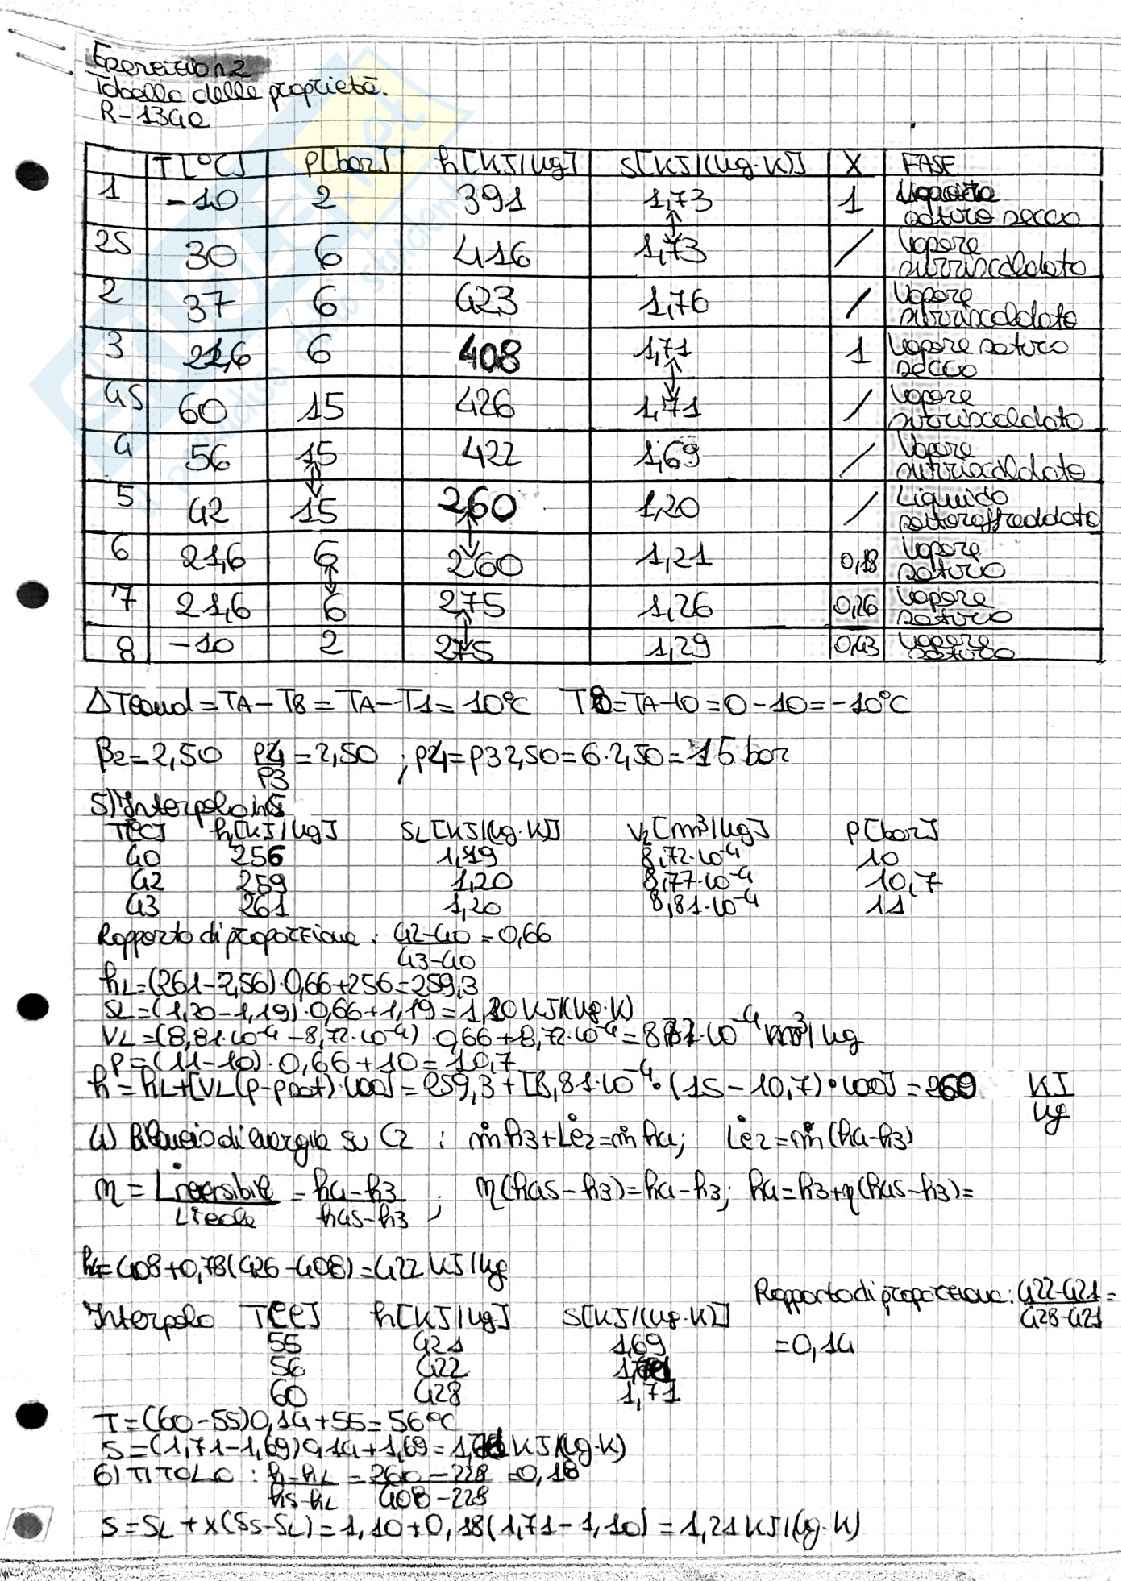 Esercizio n2
Tabella delle proprietà.
R-134a
T[°C] P[bar] h[KJ/kg] s[KJ/(kg·K)] X FASE
1 -10 2 391 1,73 1 saturo secco
2S 30 6 416 1,73 / Vapore surriscaldato
2 37 6 423 1,76 / Vapore surriscaldato
3 21,6 6 408 1,71 1 Vapore saturo secco
4S 60 15 426 1,71 / Vapore surriscaldato
4 56 15 422 1,69 / Vapore surriscaldato
5 42 15 260 1,20 / Liquido sottoraffreddato
6 21,6 6 260 1,21 0,18 Vapore saturo
7 21,6 6 275 1,26 0,26 Vapore saturo
8 -10 2 275 1,29 0,43 Vapore saturo
ΔTcond = TA-T8 = TA-T1 = 10°C T8=TA-10=0-10=-10°C
β2=2,50 P4/P3=2,50 ; P4=P3 2,50=6·2,50=15 bar
5) Interpolo h5
T[°C] h[KJ/kg] SL[KJ/(kg·K)] VL[m³/kg] P[bar]
40 256 1,19 8,72·10⁻⁴ 10
42 259 1,20 8,77·10⁻⁴ 10,7
43 261 1,20 8,81·10⁻⁴ 11
Rapporto di proporzione: 42-40/43-40=0,66
hL=(261-2,56)·0,66+256=259,3
SL=(1,20-1,19)·0,66+1,19=1,20 KJ/(kg·K)
VL=(8,81·10⁻⁴-8,72·10⁻⁴)·0,66+8,72·10⁻⁴= m³/kg
P=(11-10)·0,66+10=10,7
h=hL+[VL(p-psat)·100]=259,3+[8,81·10⁻⁴·(15-10,7)·100]=260 KJ/kg
4) Bilancio di energia su C2 : ṁh3+L̇e2=ṁh4; L̇e2=ṁ(h4-h3)
η=Lreversibile/Lreale=h4-h3/h4s-h3, η(h4s-h3)=h4-h3; h4=h3+η(h4s-h3)=
h4=408+0,78(426-408)=422 KJ/kg
Rapporto di proporzione: 422-421/428-421=
=0,14
Interpolo T[°C] h[KJ/kg] S[KJ/(kg·K)]
55 421 1,69
56 422
60 428 1,71
T=(60-55)0,14+55=56°C
S=(1,71-1,69)0,14+1,69= KJ/(kg·K)
6) TITOLO : h-hL/hs-hL=260-228/408-228=0,18
S=SL+x(Ss-SL)=1,10+0,18(1,71-1,10)=1,21 KJ/(kg·K)